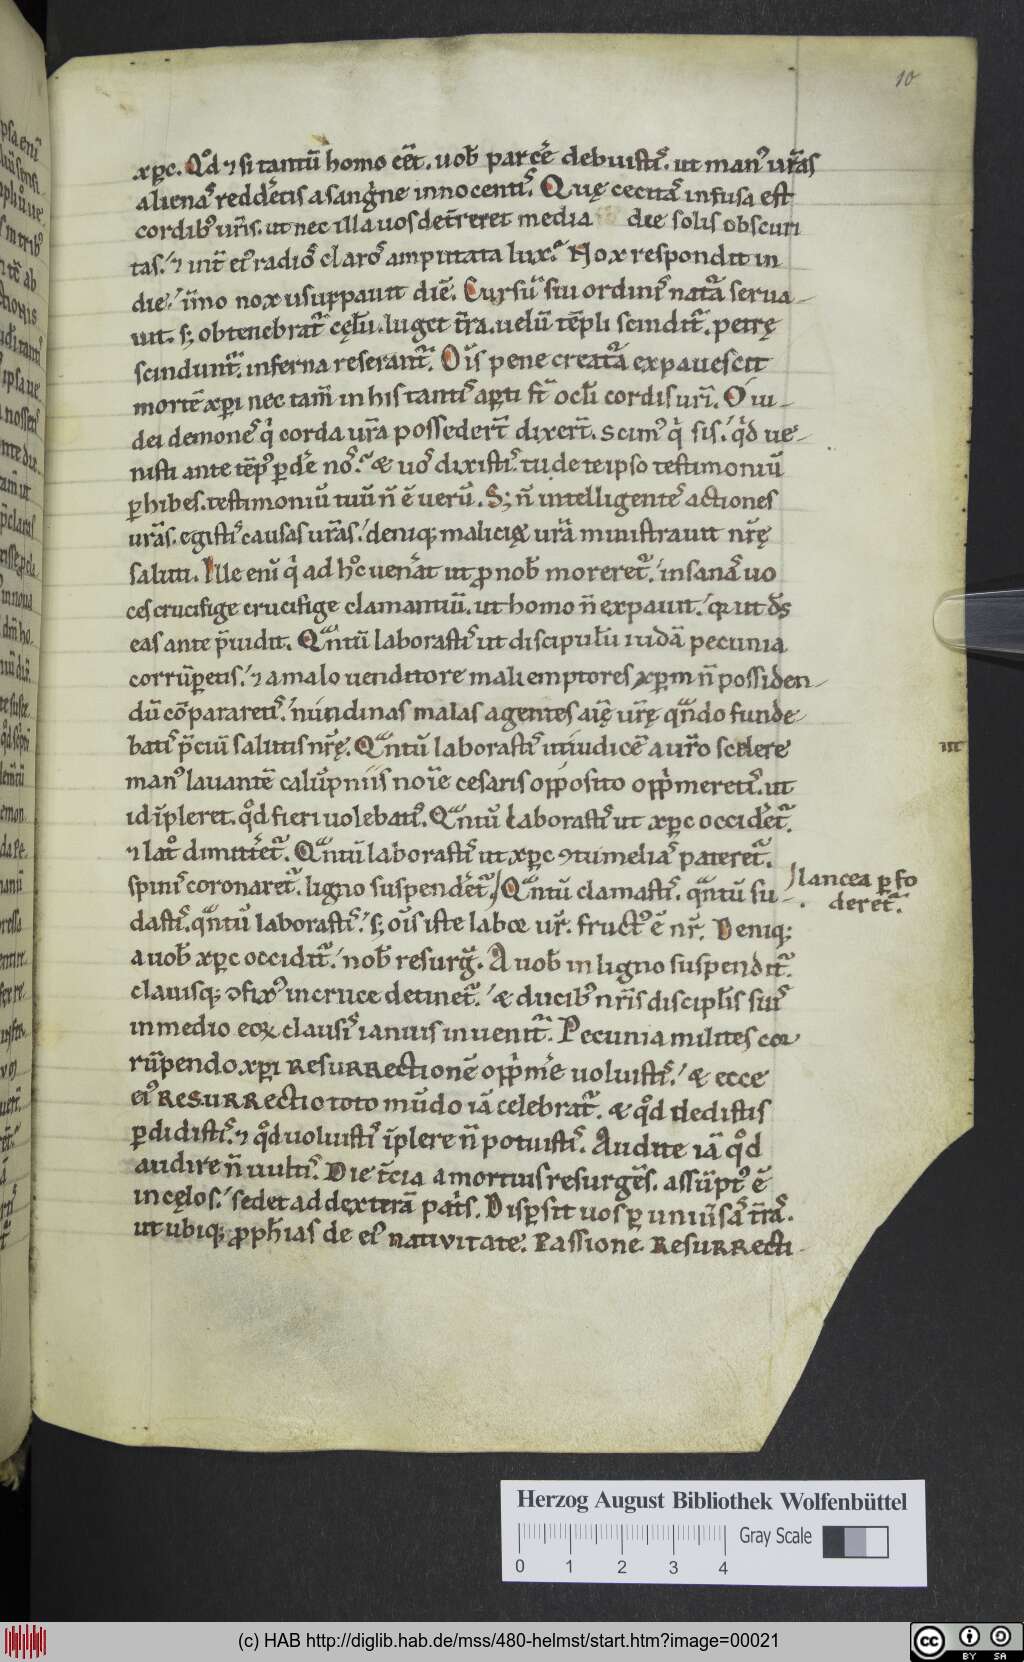 10
.xp̄c. Qᵒd ⁊ si tantū homo eēt. uob̄ parcẽ debuistis. ut manꝰ ur̄as
alienas reddetis a sangine innocentis. Quę cecitas infusa est
cordibꝰ ur̄is. ut nec illa uos det̄reret media die solis obscuri
tas. ⁊ uit̄ eiꝰ radios claros amputata lux. Nox respondit in
die. im̄o nox usurpauit diē. Cursū sui ordinis natā serua-
uit. s; obtenebrat̄ cęlū. luget t̄ra. uelū tēpli scindit̄. petrę
scindunt̄. inferna reserant̄. Oīs pene creatā expauescit
mortē xp̄i nec tam̄ in his tantis ap̄ti st̄ ocl̄i cordis ur̄i. O iu-
dei demones q̇ corda ur̄a possedert̄ dixert̄. scimꝰ q̇ sis. q̇d ue-
nisti ante tēpꝰ p̄de nos. & uos dixistis. tu de te ipso testimoniū
p̄hibes. testimoniū tuū n̄ ē uerū. S; n̄ intelligentes actiones
ur̄as. egistis causas ur̄as. deniq; malicię ur̄a ministrauit nr̄ę
saluti. Ille eni q̇ ad hoc uenerat ut p̄ nob̄ moreret̄. insanas uo
ces crucifige crucifige clamantiū. ut homo n̄ expauit. qꝛ ut d̄s
eas ante p̄uidit. Qᵃntū laborastis ut discipulū iudā pecunia
corrūperetis. ⁊ a malo uenditore mali emptores xp̄m n̄ possiden-
dū cōpararetis. nundinas malas agentes aīę ur̄ę qᵃndo funde-
batis p̄ciū salutis nr̄ę. Qᵃntū laborastis ut iudicē a uro scelere
manꝰ lauantē calūpniis noīe cesaris opposito opprimeretis. ut
id īpleret. qᵒd fieri uolebatis. Qᵃntū laborastis ut xp̄c occideret̄.
⁊ latᵒ dimitteret̄. Qᵃntū laborastis ut xp̄c ↄtumelias pateret̄.
spinis coronaret̄. ligno suspenderet̄. Qᵃntū clamastis. qᵃntū su-
lancea p̄fo
deret̄.
dastis. qᵃntū laborastis. s; oīs iste laboꝛ ur̄. fructꝰ ē nr̄. Deniq;
a uob̄ xp̄c occidit̄. nob̄ resurḡ. A uob̄ in ligno suspendit̄.
clauisq; ↄfixꝰ in cruce detinet̄. & ducibꝰ nr̄is discipl̄is suis
in medio eoꝝ clausis ianuis inuenit̄. Pecunia milites coꝛ-
rūpendo. xp̄i resurrectionē opprimere uoluistis. & ecce
eiꝰ resurrectio toto mūdo iā celebrat̄. & qᵒd dedistis
p̄didistis. ⁊ qᵒd uoluistis īplere n̄ potuistis. Audite iā qᵒd
audire n̄ uultis. Die t̄cia a mortuis resurgēs. assūptꝰ ē
in cęlos. sedet ad dexterā patris. Disp̄sit uos p̄ uniūsā t̄rā.
ut ubiq; p̄phīas de eiꝰ nativitate. Passione Resurrecti-
Herzog August Bibliothek Wolfenbüttel
Gray Scale
0 1 2 3 4
(c) HAB http://diglib.hab.de/mss/480-helmst/start.htm?image=00021
cc BY SA